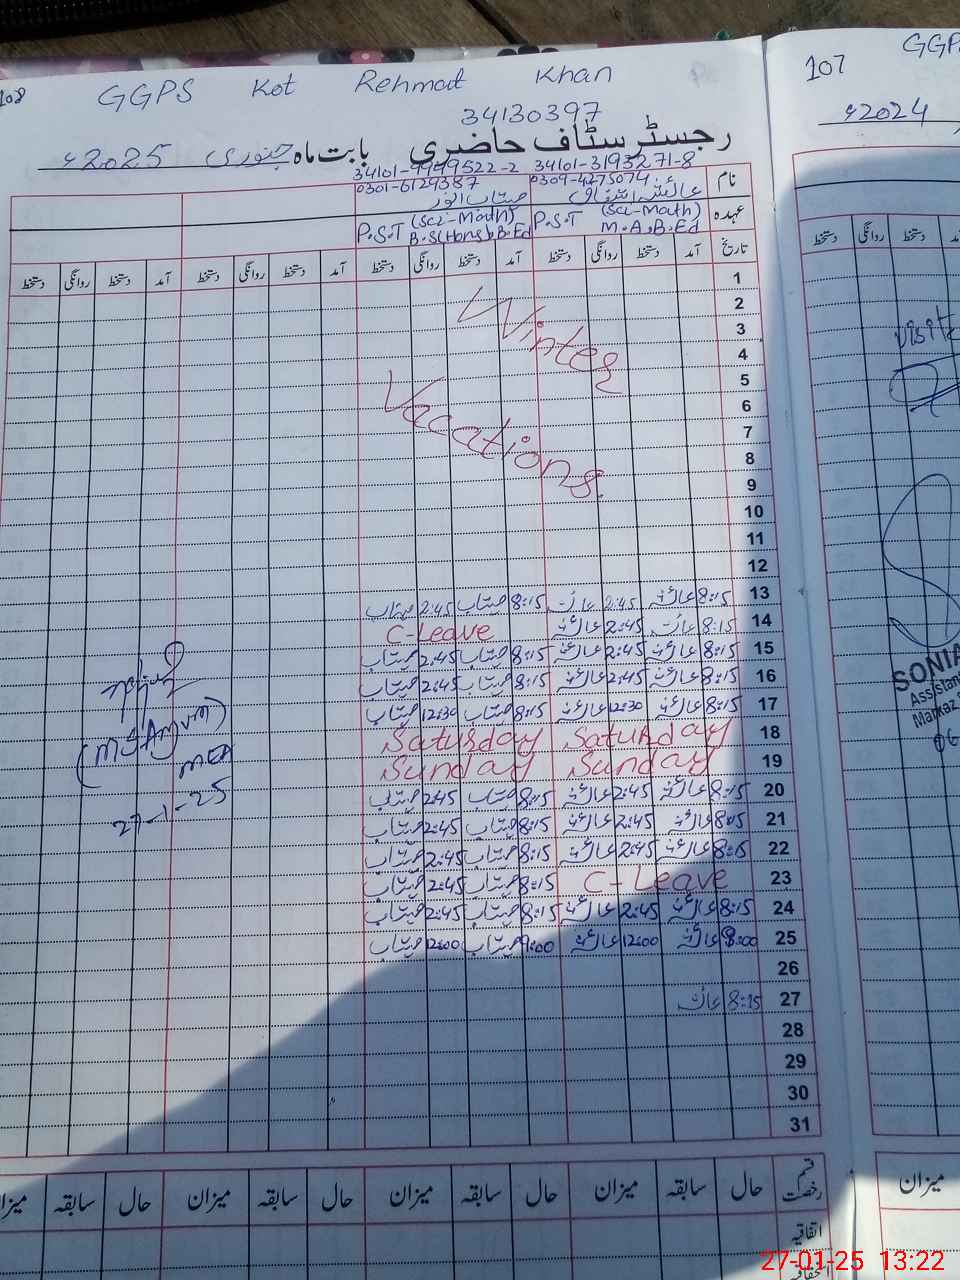 108
GGPS Kot Rehmat Khan
34130397
رجسٹر سٹاف حاضری بابت ماہ جنوری 2025ء
نام 34101-3193271-8 34101-9949522-2
0309-4275074 0301-6129387
عہدہ P.S.T (Sci-Math) M.A,B.Ed P.S.T (Sci-Math) B.S(Hons),B.Ed
تاریخ آمد دستخط روانگی دستخط آمد دستخط روانگی دستخط آمد دستخط روانگی دستخط آمد دستخط روانگی دستخط
1
2
3
4
5
6
7
8
9
10
11
12
Winter
Vacations
13 8:15 عائشہ 2:45 عائشہ 8:15 2:45
14 8:15 عائشہ 2:45 عائشہ C-Leave
15 8:15 عائشہ 2:45 عائشہ 8:15 2:45
16 8:15 عائشہ 2:45 عائشہ 8:15 2:45
17 8:15 عائشہ 12:30 عائشہ 8:15 12:30
18 Saturday Saturday
19 Sunday Sunday
20 8:15 عائشہ 2:45 عائشہ 8:15 2:45
21 8:15 عائشہ 2:45 عائشہ 8:15 2:45
22 8:15 عائشہ 2:45 عائشہ 8:15 2:45
23 C-Leave 8:15 2:45
24 8:15 عائشہ 2:45 عائشہ 8:15 2:45
25 9:00 عائشہ 12:00 عائشہ 9:00 12:00
26
27 8:15 عائشہ
28
29
30
31
MEA
27-1-25
قسم رخصت حال سابقہ میزان حال سابقہ میزان حال سابقہ میزان حال سابقہ میزان
اتفاقیہ
107
2024ء
دستخط روانگی دستخط
visit
SONIA
Assistant
Markaz
06
میزان
27-01-25 13:22